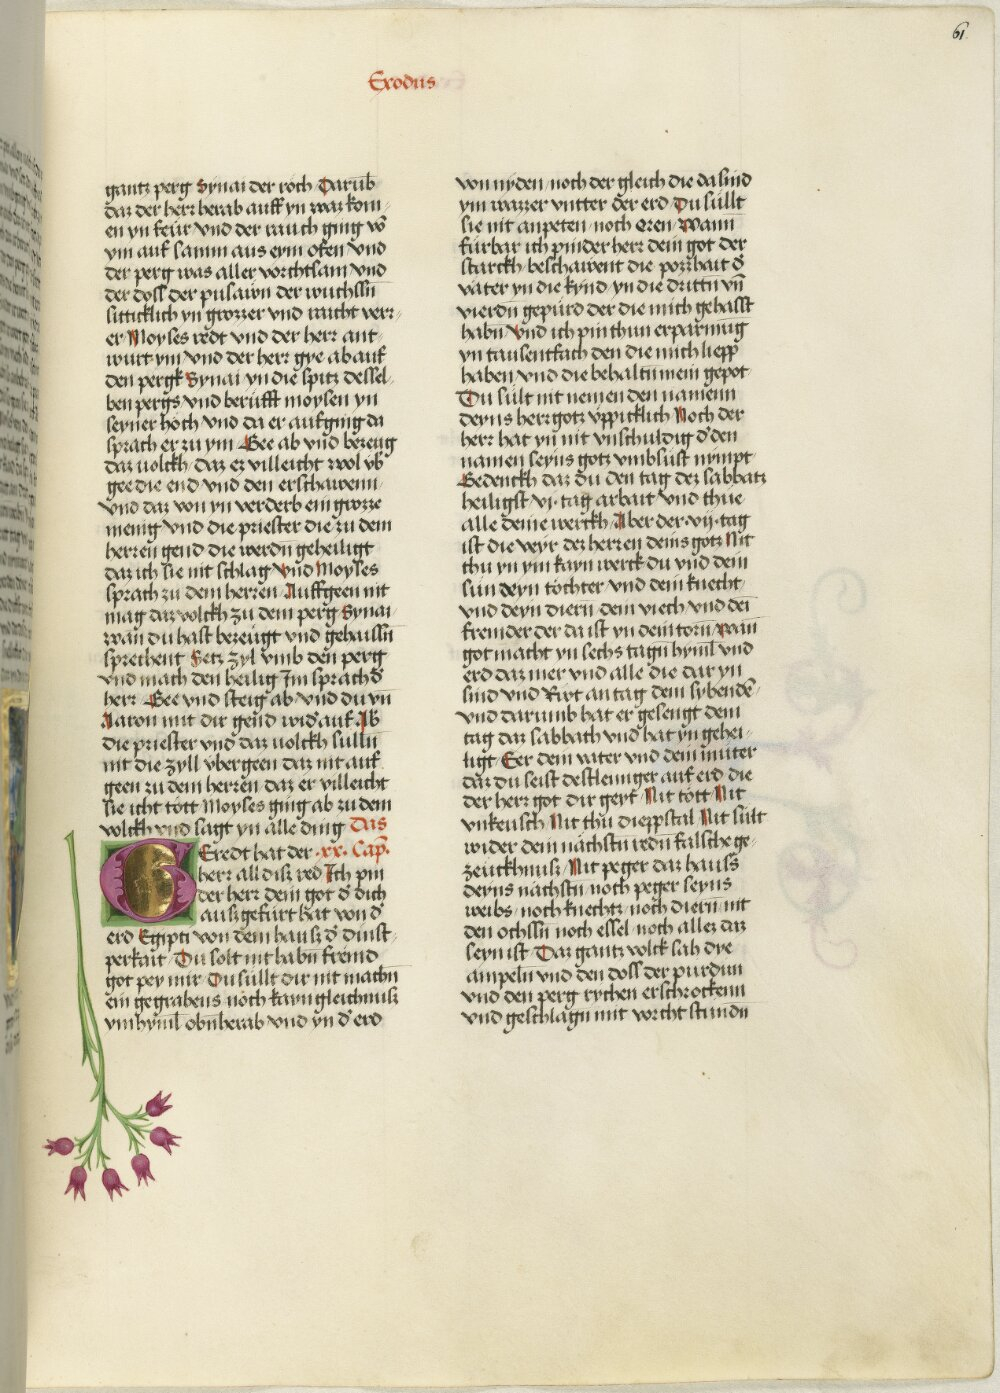 61
Exodus
gantz perg Synai der roch Darub
daz der herr herab auff yn waz kom-
en yn feür vnd der rauch ging vō
ym auf samm aus eym ofen vnd
der perg was aller vorchtsam vnd
der doss der pusawn der wuchssn
sitticklich yn grozzer vnd
er Moyses redt vnd der herr ant-
wurt ym vnd der herr gye ab auf
den pergk Synai yn die spitz dessel-
ben pergs vnd berüfft moysen yn
seyner hoch vnd da er auf ging da
sprach er zu ym Gee ab vnd bezeug
daz uolckh daz er villeicht wol vb
gee die end vnd den erschawenn
vnd daz von yn verderb ein grozze
menig vnd die priester die zu dem
herren gend die werdn geheiligt
daz ich sie nit schlag Vnd Moyses
sprach zu dem herren Auffgeen nit
mag daz volckh zu dem perg Synai
wan du hast bezeugt vnd gehaissn
sprechent Setz zyl vmb den perg
vnd mach den heilig Im sprach d̄
herr Gee vnd steig ab vnd du vn
Aaron mit dir gend wid̄ auf Ab
die priester vnd daz uolckh sulln
nit die zyll vbergeen daz nit auf
geen zu dem herren daz er villeicht
sie icht tött Moyses ging ab zu dem
volckh vnd sagt yn alle ding Das
Eredt hat der .xx. Cap̄.
herr all disz red Ich pin
der herr dein got d̄ dich
auszgefürt hat von d̄
erd Egipti von dem hausz d̄ dinst-
perkait Du solt nit habn fremd
got pey mir Du süllt dir nit machn
ein gegrabens noch kayn gleichnusz
ym hyml obn herab vnd yn d̄ erd
von nyden noch der gleich die da sind
ym wazzer vntter der erd Du süllt
sie nit anpeten noch eren Wann
fürbar ich pin der herr dein got der
starckh beschawent die pozzhait d̄
väter yn die kynd yn die drittn vn̄
vierdn gepürd der die mich gehasst
habn Vnd ich pin thun erparmug
yn tausentfach den die mich liepp
haben vnd die behaltn mein gepot
Du sült nit nemen den namenn
deyns herr gotz vppicklich Noch der
herr hat yn nit vnschuldig d̄ den
namen seyns gotz vmbsüst nympt
Gedenckh daz du den tag dez sabbatz
heiligst vi tag arbait vnd thue
alle deine werckh Aber der .vij. tag
ist die veyr dez herren deins gotz Nit
thu yn ym kayn werck du vnd dein
sun deyn tochter vnd dein knecht
vnd deyn diern dein viech vnd dei
fremder der da ist yn dein torn Wan
got macht yn sechs tagn hyml vnd
erd daz mer vnd alle die dar yn
sind vnd an tag dem sybendē
vnd darumb hat er gesengt dem
tag daz sabbath vnd hat yn gehei-
ligt Eer dem vater vnd dein müter
daz du seist destlenniger auf erd die
der herr got dir geyt Nit tött Nit
vnkeusch Nit thu diezpstal Nit sült
wider dein nächstn redn falsche ge-
zeückhnusz Nit peger daz hauss
deyns nächstn noch peger seyns
weibs noch knechtz noch diern nit
den ochssn noch essel noch allez daz
seyn ist Daz gantz volck sah dye
ampeln vnd den doss der purdun
vnd den perg rychen erschrockenn
vnd geschlagn mit vorcht stundn